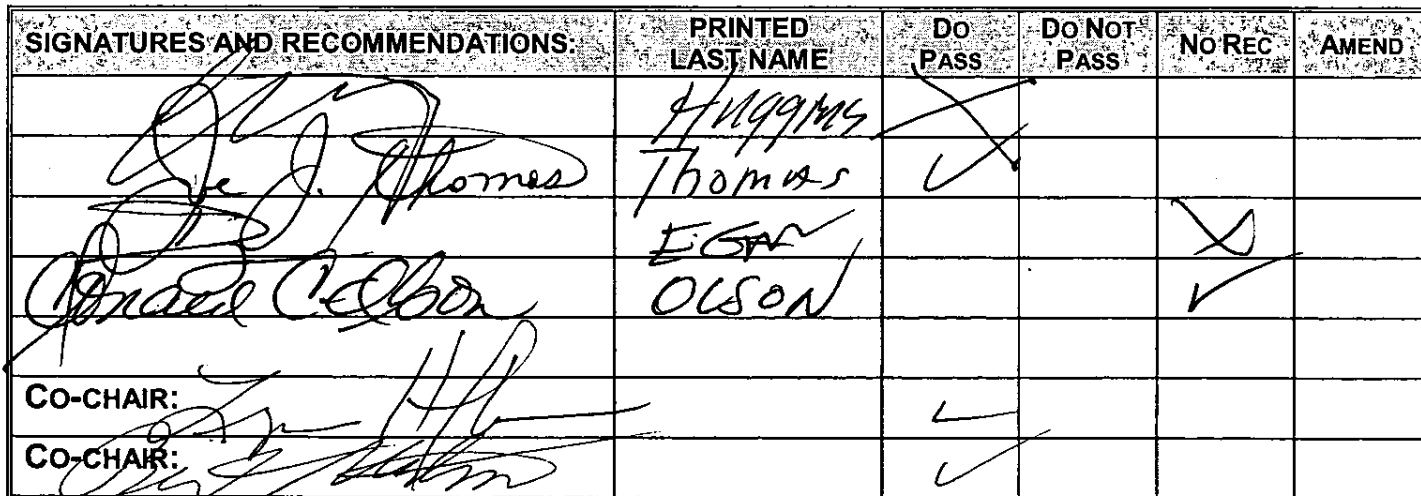 SIGNATURES AND RECOMMENDATIONS: PRINTED LAST NAME DO PASS DO NOT PASS NO REC AMEND
Huggins
Joe J. Thomas Thomas
EGAN
Donald C Olson OLSON
CO-CHAIR:
CO-CHAIR: